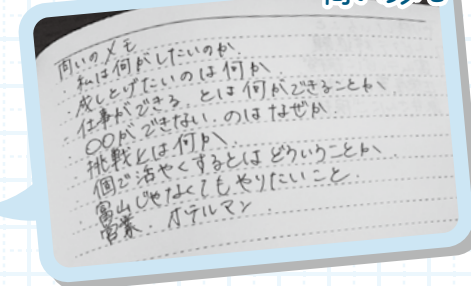 問いのメモ
私は何がしたいのか
・成しとげたいのは何か
・仕事ができる、とは何ができることか
・〇〇ができない、のはなぜか
・挑戦とは何か
・個で活やくするとはどういうことか
・富山じゃなくてもやりたいこと.
・営業. ホテルマン.